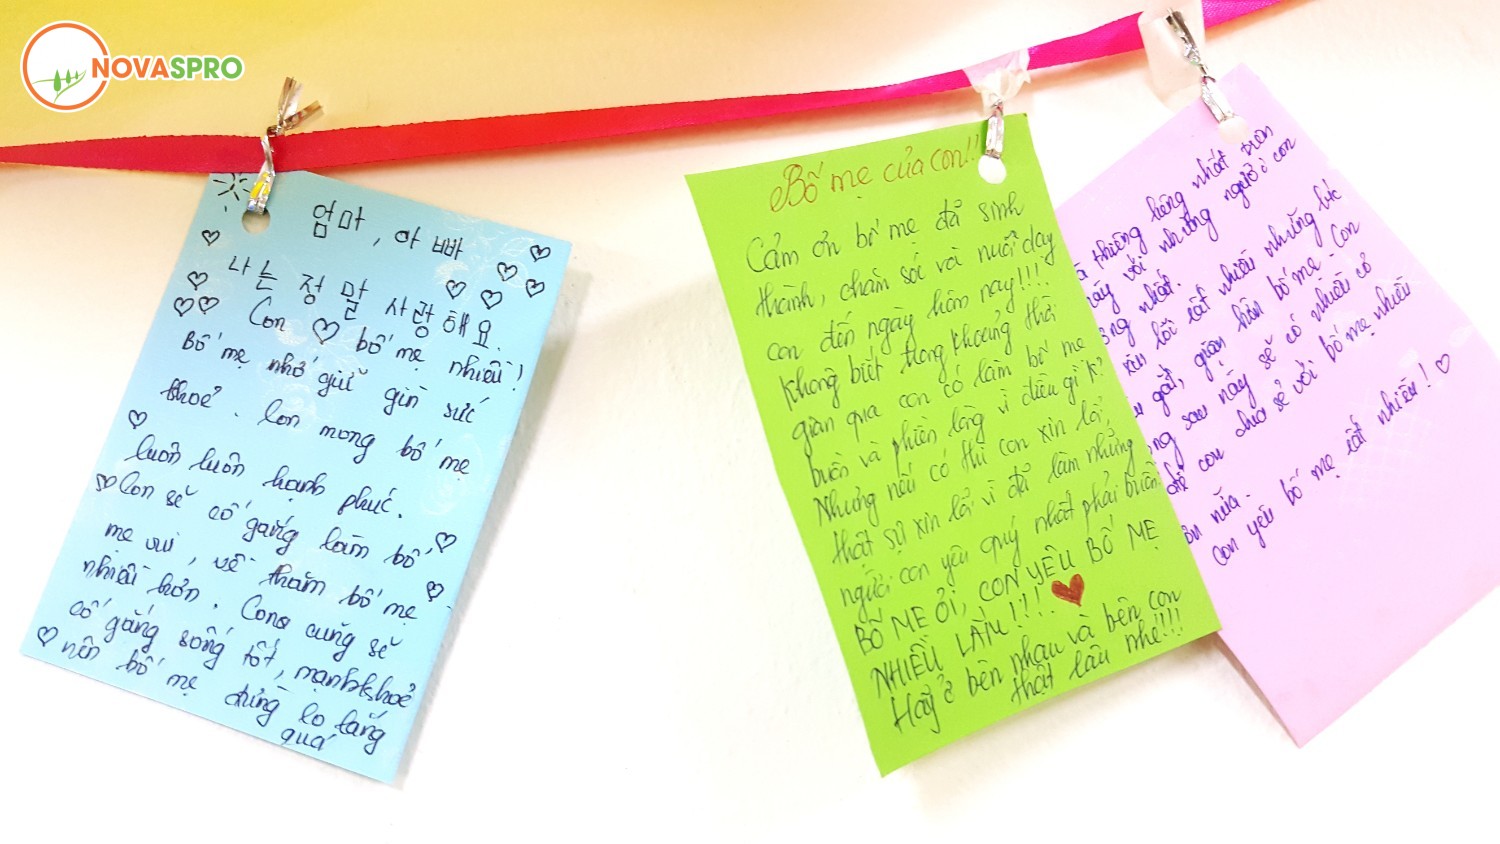 NOVASPRO
엄마, 아빠
나는 정말 사랑해요.
Con bố mẹ nhiều!
Bố mẹ nhớ giữ gìn sức
khoẻ. Con mong bố mẹ
luôn luôn hạnh phúc.
Con sẽ cố gắng làm bố
mẹ vui, về thăm bố mẹ
nhiều hơn. Con cũng sẽ
cố gắng sống tốt, mạnh khoẻ
nên bố mẹ đừng lo lắng
quá
Bố mẹ của con!!
Cảm ơn bố mẹ đã sinh
thành, chăm sóc và nuôi dạy
con đến ngày hôm nay!!!
Không biết trong khoảng thời
gian qua con có làm bố mẹ
buồn và phiền lòng vì điều gì k?
Nhưng nếu có thì con xin lỗi,
thật sự xin lỗi vì đã làm những
người con yêu quý nhất phải buồn.
BỐ MẸ ƠI, CON YÊU BỐ MẸ
NHIỀU LẮM!!!.
Hãy ở bên nhau và bên con
thật lâu nhé!!!
thiêng liêng nhất trên
này với những người con
nhất.
xin lỗi rất nhiều những lúc
gắt, giận hờn bố mẹ. Con
sau này sẽ có nhiều cơ
để con chia sẻ với bố mẹ nhiều
hơn nữa.
Con yêu bố mẹ rất nhiều!